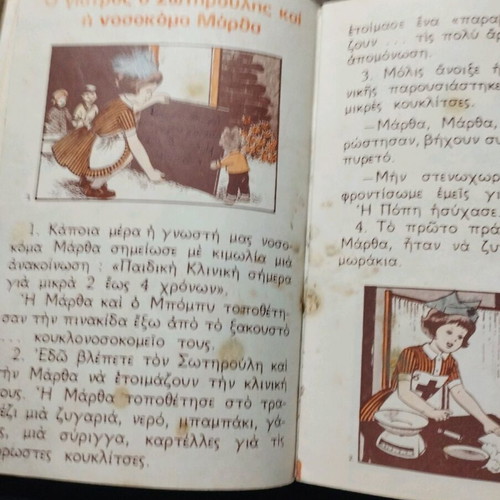 Ὁ γιατρὸς ὁ Σωτηρούλης καὶ
ἡ νοσοκόμα Μάρθα
1. Κάποια μέρα ἡ γνωστή μας νοσο-
κόμα Μάρθα σημείωσε μὲ κιμωλία μιὰ
ἀνακοίνωση : «Παιδικὴ Κλινικὴ σήμερα
γιὰ μικρὰ 2 ἕως 4 χρόνων».
Ἡ Μάρθα καὶ ὁ Μπόμπυ τοποθέτη-
σαν τὴν πινακίδα ἔξω ἀπὸ τὸ ξακουστὸ
... κουκλονοσοκομεῖο τους.
2. Ἐδῶ βλέπετε τὸν Σωτηρούλη καὶ
τὴν Μάρθα νὰ ἑτοιμάζουν τὴν κλινική
τους. Ἡ Μάρθα τοποθέτησε στὸ τρα-
πέζι μιὰ ζυγαριά, νερό, μπαμπάκι, γά-
μιὰ σύριγγα, καρτέλλες γιὰ τὶς
ἄρρωστες κουκλίτσες.
ἑτοίμασε ἕνα «παραβ
ζουν ... τὶς πολὺ ἄρ
ἀπομόνωση.
3. Μόλις ἄνοιξε ἡ
νικῆς παρουσιάστηκε
μικρὲς κουκλίτσες.
—Μάρθα, Μάρθα,
ρώστησαν, βήχουν συ
πυρετό.
—Μὴν στενωχωρ
φροντίσωμε ἐμεῖς γι
Ἡ Πόπη ἡσύχασε
4. Τὸ πρῶτο πρά
Μάρθα, ἦταν νὰ ζυ
μωράκια.